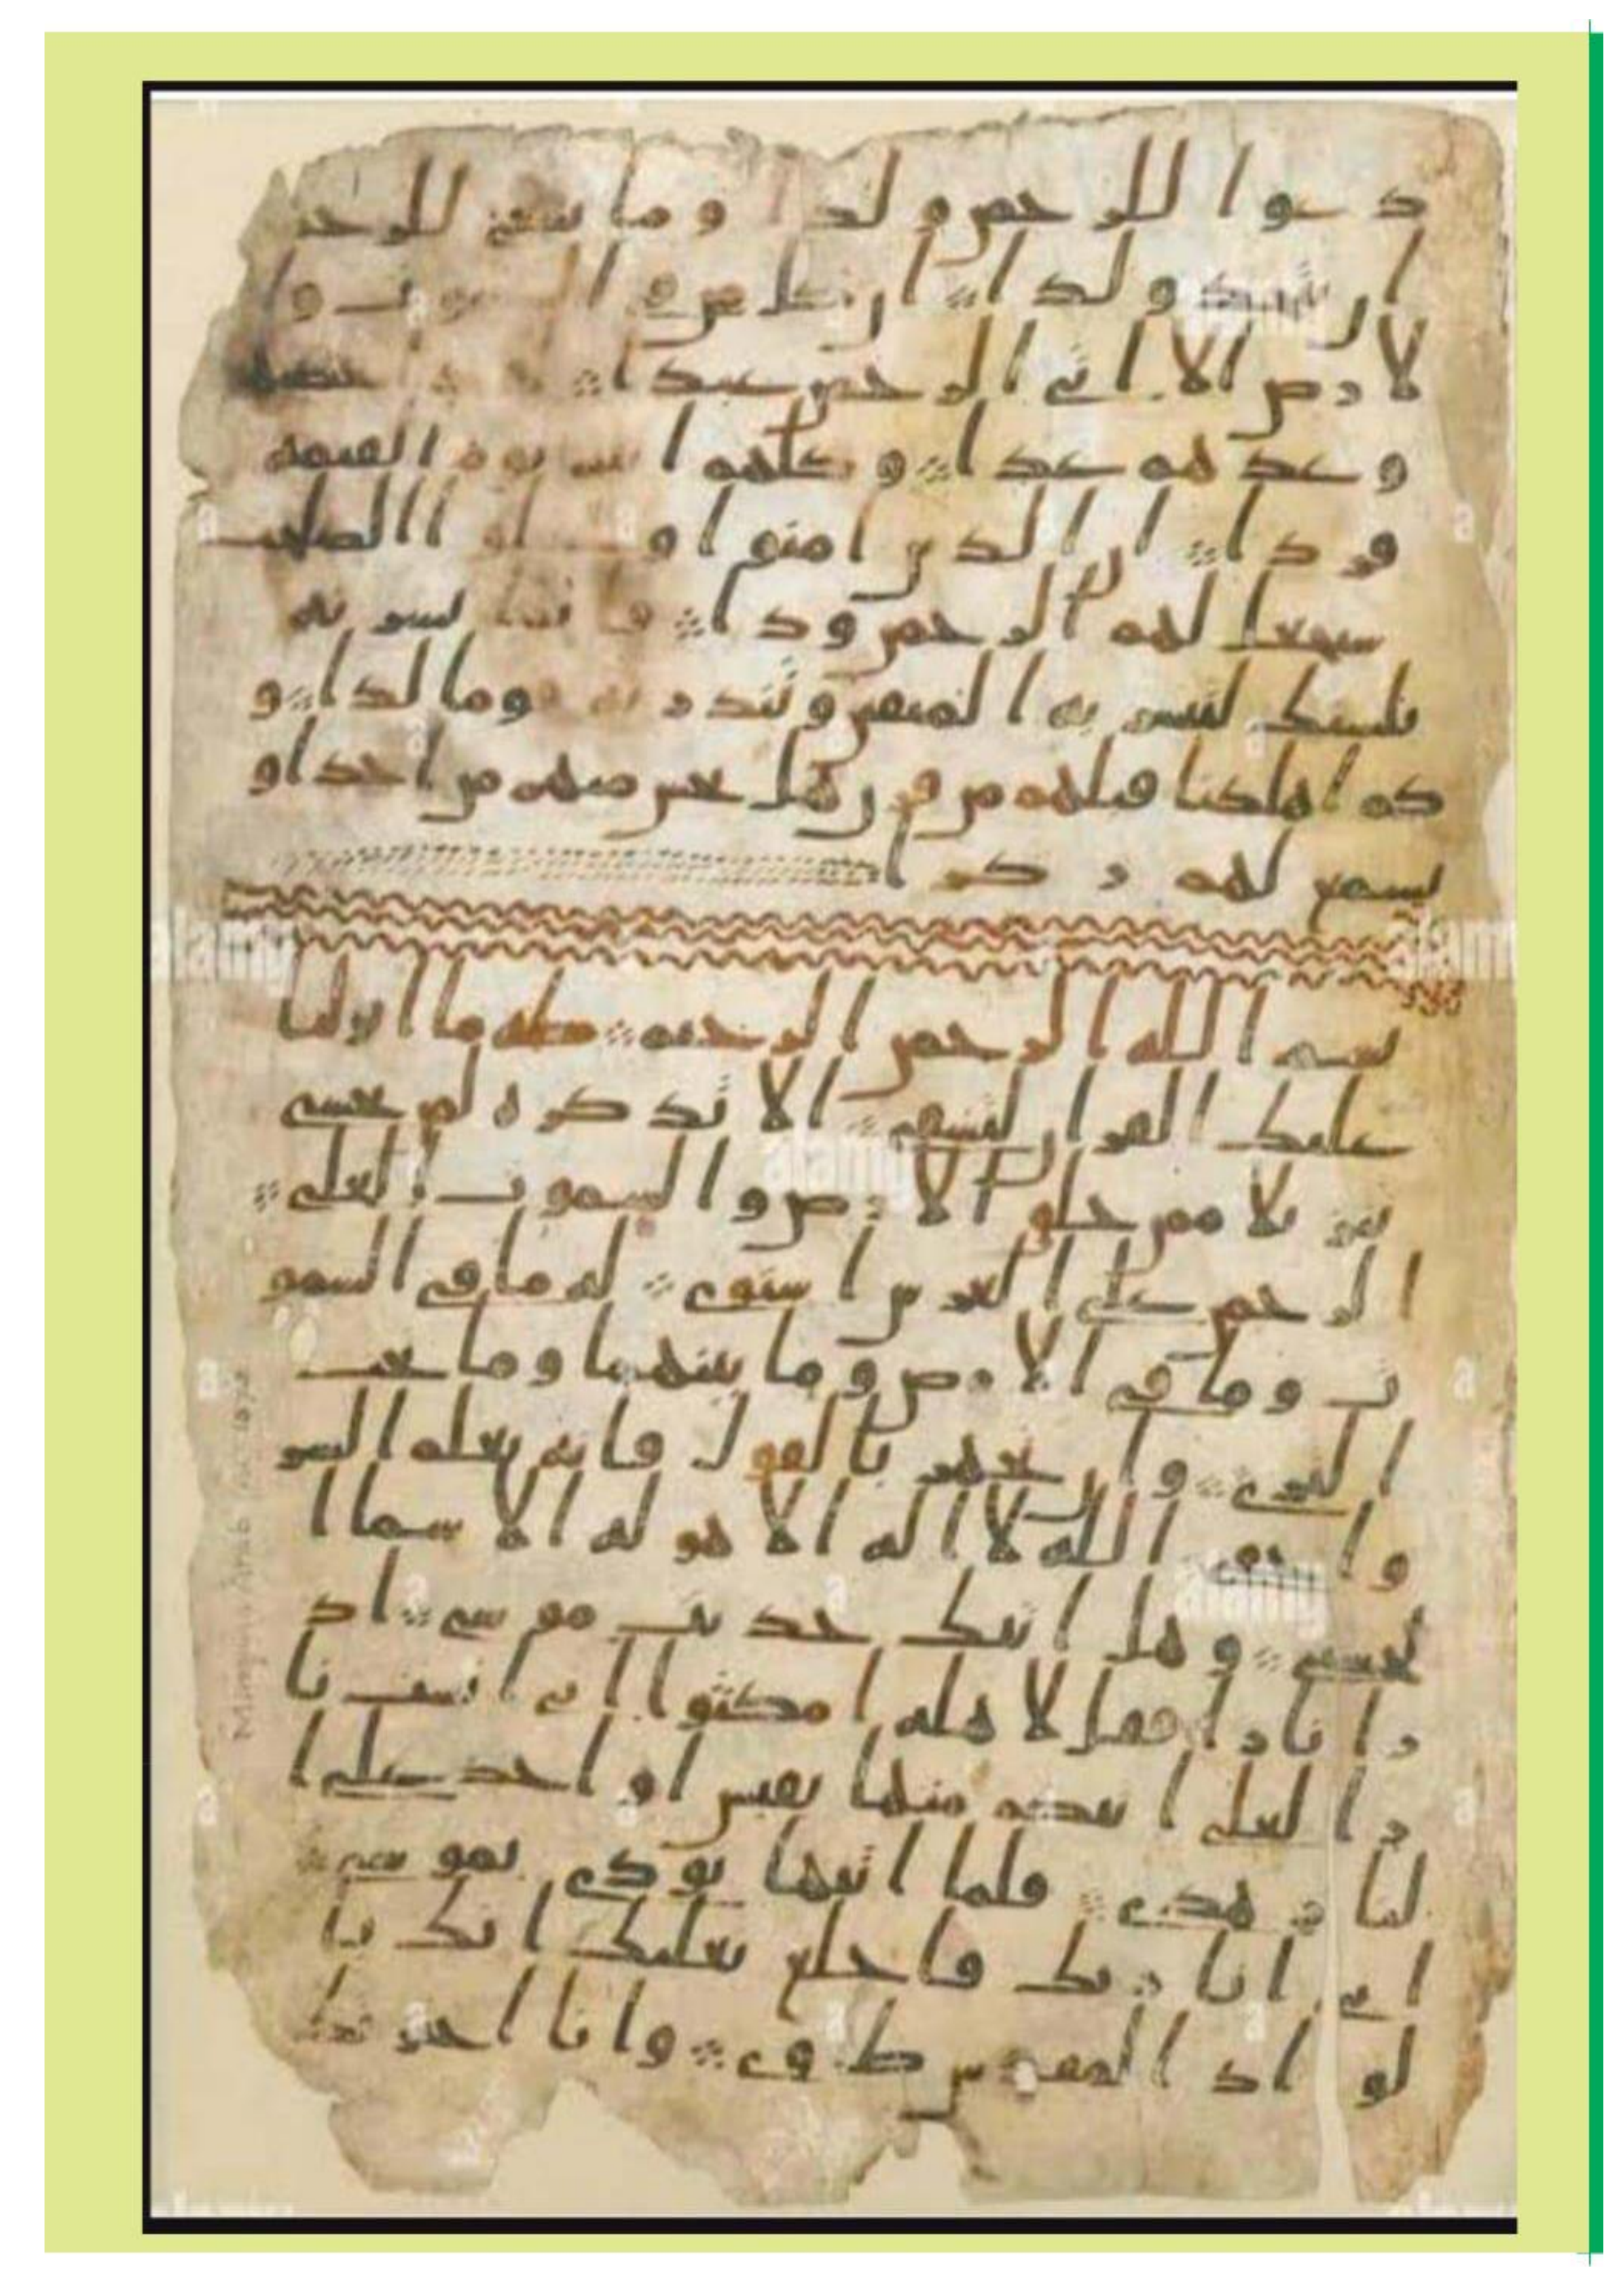 دعوا للرحمن ولدا وما ينبغي للرحمن
ان يتخذ ولدا ان كل من في السموت وا
لارض الا اتي الرحمن عبدا
وعدهم عدا وكلهم اتيه يوم القيمه
فردا ان الذين امنوا وعملوا الصلحت
سيجعل لهم الرحمن ودا فانما يسرنه
بلسنك لتبشر به المتقين وتنذر به قوما لدا و
كم اهلكنا قبلهم من قرن هل تحس منهم من احد او
تسمع لهم ركزا
بسم الله الرحمن الرحيم طه ما انزلنا
عليك القران لتشقى الا تذكره لمن يخشى
تنزيلا ممن خلق الارض والسموت العلى
الرحمن على العرش استوى له ما في السمو
ت وما في الارض وما بينهما وما تحت
الثرى وان تجهر بالقول فانه يعلم السر
واخفى الله لا اله الا هو له الاسما ا
لحسنى وهل اتيك حديث موسى اذ
را نارا فقل لاهله امكثوا اني انست نا
را لعلي اتيكم منها بقبس او اجد على ا
لنار هدى فلما اتيها نودي يموسى
اني انا ربك فاخلع نعليك انك با
لواد المقدس طوى وانا اخترتك
alamy